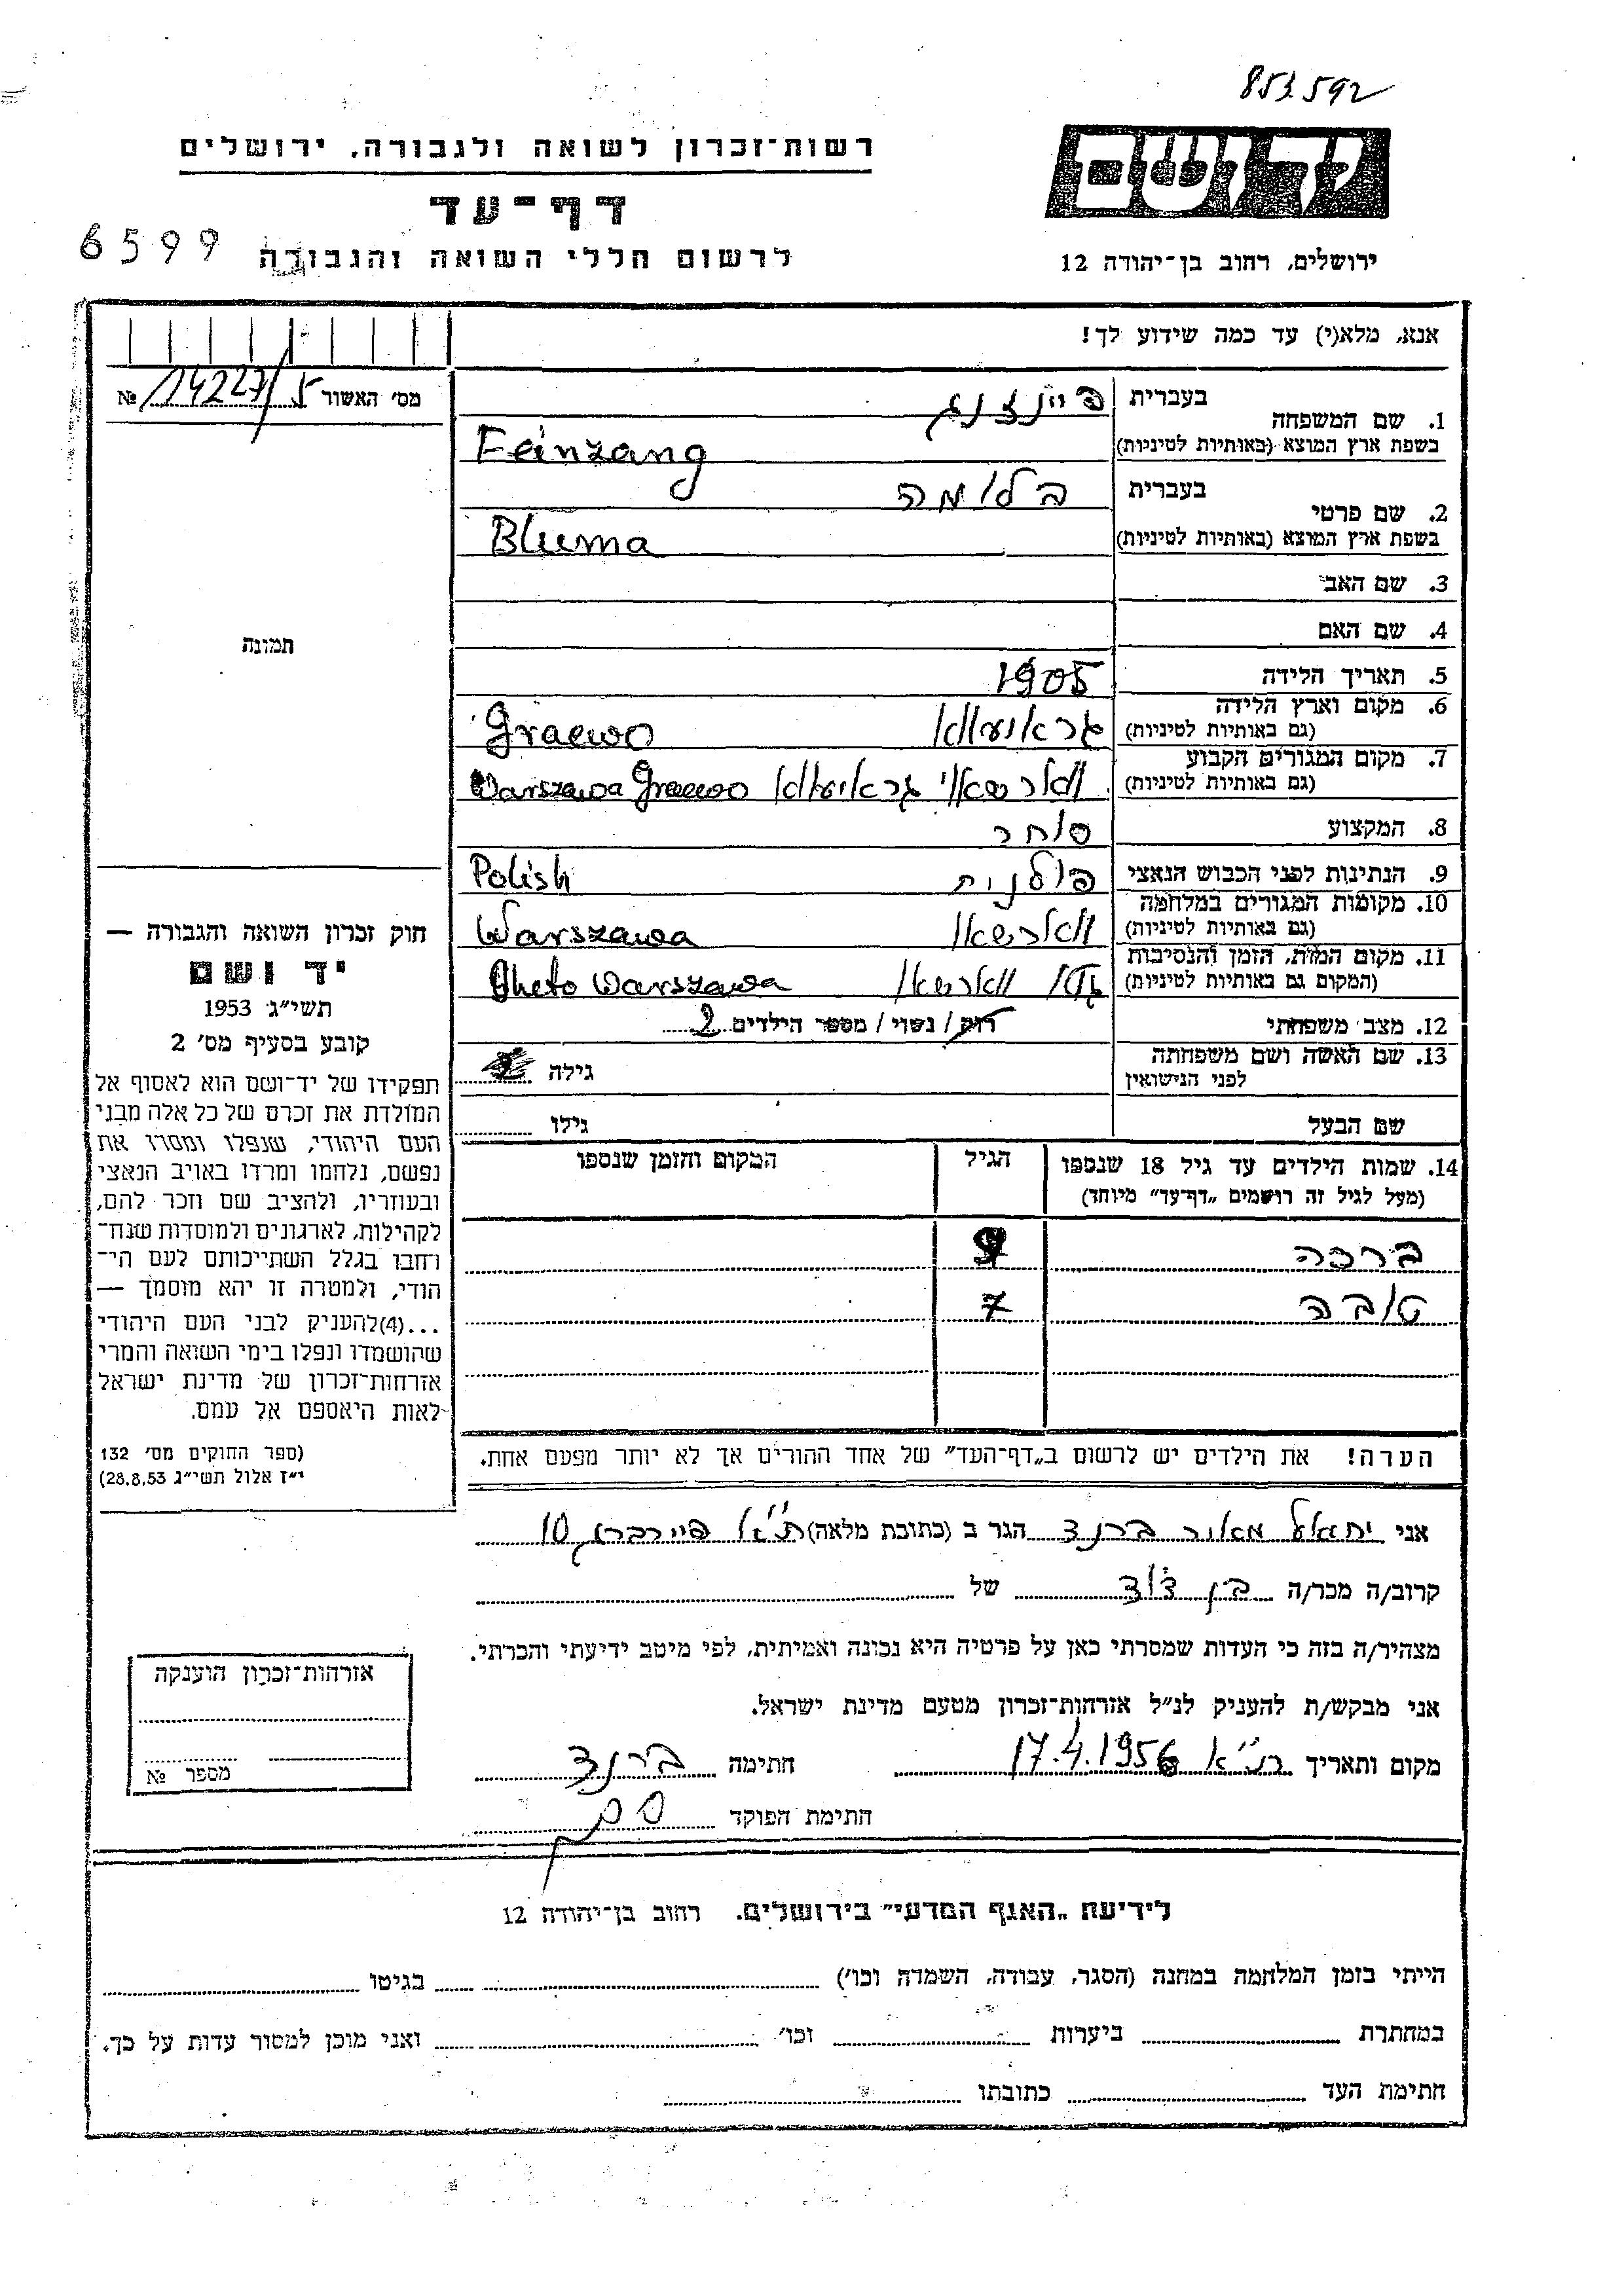 853592
רשות־זכרון לשואה ולגבורה, ירושלים
יד ושם
דף־עד
6599
לרשום חללי השואה והגבורה
ירושלים, רחוב בן־יהודה 12
אנא, מלא(י) עד כמה שידוע לך!
מס׳ האשור 14227/5 №
1. שם המשפחה
בעברית פיינזנג
בשפת ארץ המוצא (באותיות לטיניות) Feinzang
2. שם פרטי
בעברית בלומה
בשפת ארץ המוצא (באותיות לטיניות) Bluma
3. שם האב
4. שם האם
תמונה
5. תאריך הלידה 1905
6. מקום וארץ הלידה
(גם באותיות לטיניות) Graewo
7. מקום המגורים הקבוע
(גם באותיות לטיניות) Warszawa Graewo
8. המקצוע סוחר
9. הנתינות לפני הכבוש הנאצי פולנית Polish
10. מקומות המגורים במלחמה
(גם באותיות לטיניות) Warszawa
11. מקום המות, הזמן והנסיבות
(המקום גם באותיות לטיניות) Gheto Warszawa
12. מצב משפחתי רוק / נשוי / מספר הילדים 2
13. שם האשה ושם משפחתה
לפני הנישואין
גילה
שם הבעל גילו
14. שמות הילדים עד גיל 18 שנספו הגיל המקום והזמן שנספו
(מעל לגיל זה רושמים „דף־עד״ מיוחד)
ברכה 9
טובה 7
הערה! את הילדים יש לרשום ב„דף־העד״ של אחד ההורים אך לא יותר מפעם אחת.
חוק זכרון השואה והגבורה —
יד ושם
תשי״ג 1953
קובע בסעיף מס׳ 2
תפקידו של יד־ושם הוא לאסוף אל
המולדת את זכרם של כל אלה מבני
העם היהודי, שנפלו ומסרו את
נפשם, נלחמו ומרדו באויב הנאצי
ובעוזריו, ולהציב שם וזכר להם,
לקהילות, לארגונים ולמוסדות שנח־
רחבו בגלל השתייכותם לעם הי־
הודי, ולמטרה זו יהא מוסמך —
...(4)להעניק לבני העם היהודי
שהושמדו ונפלו בימי השואה והמרי
אזרחות־זכרון של מדינת ישראל
לאות היאספם אל עמם.
(ספר החוקים מס׳ 132
י״ז אלול תשי״ג 28.8.53)
אני מאיר ברנד הגר ב (כתובת מלאה) ת״א פיירברג 10
קרוב/ה מכר/ה בן דוד של
מצהיר/ה בזה כי העדות שמסרתי כאן על פרטיה היא נכונה ואמיתית, לפי מיטב ידיעתי והכרתי.
אני מבקש/ת להעניק לנ״ל אזרחות־זכרון מטעם מדינת ישראל.
מקום ותאריך ת״א 17.4.1956 חתימה ברנד
חתימת הפוקד
אזרחות־זכרון הוענקה
מספר №
לידיעת „האגף המדעי״ בירושלים. רחוב בן־יהודה 12
הייתי בזמן המלחמה במחנה (הסגר, עבודה, השמדה וכו׳) בגיטו
במחתרת ביערות וכו׳ ואני מוכן למסור עדות על כך.
חתימת העד כתובתו